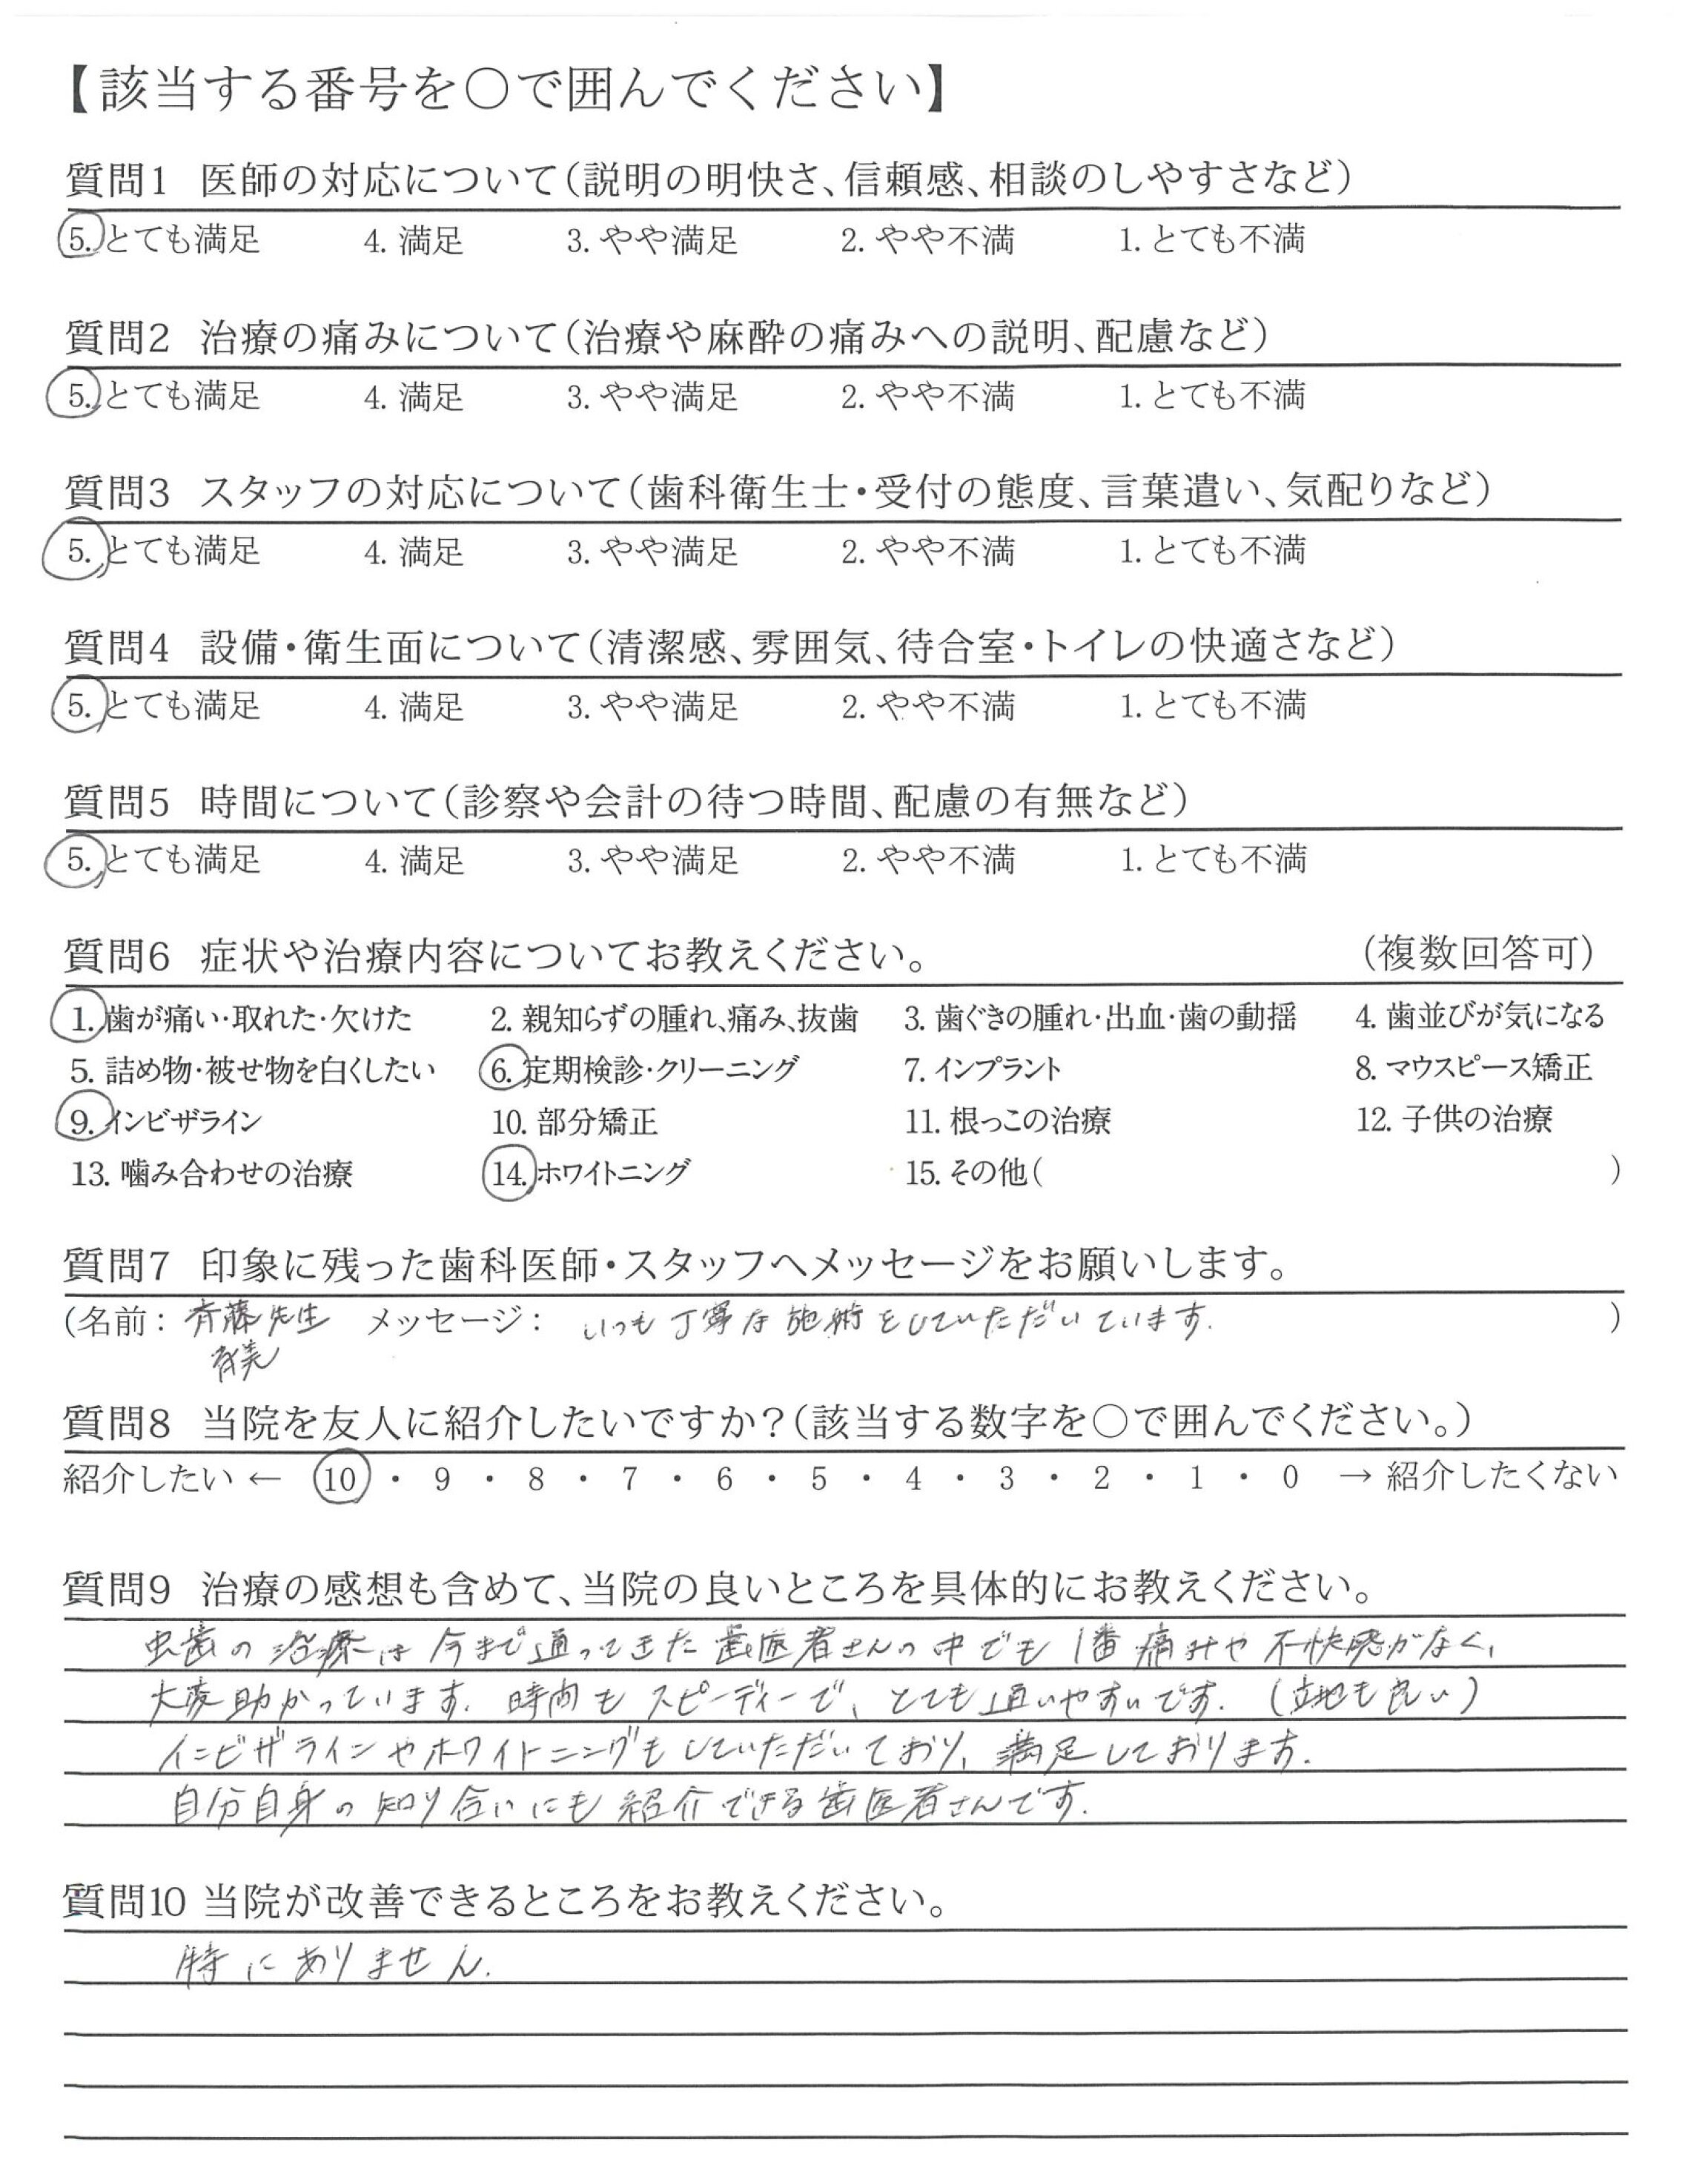 【該当する番号を〇で囲んでください】
質問1 医師の対応について(説明の明快さ、信頼感、相談のしやすさなど)
5. とても満足 4. 満足 3. やや満足 2. やや不満 1. とても不満
質問2 治療の痛みについて(治療や麻酔の痛みへの説明、配慮など)
5. とても満足 4. 満足 3. やや満足 2. やや不満 1. とても不満
質問3 スタッフの対応について(歯科衛生士・受付の態度、言葉遣い、気配りなど)
5. とても満足 4. 満足 3. やや満足 2. やや不満 1. とても不満
質問4 設備・衛生面について(清潔感、雰囲気、待合室・トイレの快適さなど)
5. とても満足 4. 満足 3. やや満足 2. やや不満 1. とても不満
質問5 時間について(診察や会計の待つ時間、配慮の有無など)
5. とても満足 4. 満足 3. やや満足 2. やや不満 1. とても不満
質問6 症状や治療内容についてお教えください。 (複数回答可)
1. 歯が痛い・取れた・欠けた 2. 親知らずの腫れ、痛み、抜歯 3. 歯ぐきの腫れ・出血・歯の動揺 4. 歯並びが気になる
5. 詰め物・被せ物を白くしたい 6. 定期検診・クリーニング 7. インプラント 8. マウスピース矯正
9. インビザライン 10. 部分矯正 11. 根っこの治療 12. 子供の治療
13. 噛み合わせの治療 14. ホワイトニング 15. その他( )
質問7 印象に残った歯科医師・スタッフへメッセージをお願いします。
(名前: 斉藤先生 メッセージ: いつも丁寧な施術をしていただいています. )
質問8 当院を友人に紹介したいですか?(該当する数字を〇で囲んでください。)
紹介したい ← 10 ・ 9 ・ 8 ・ 7 ・ 6 ・ 5 ・ 4 ・ 3 ・ 2 ・ 1 ・ 0 → 紹介したくない
質問9 治療の感想も含めて、当院の良いところを具体的にお教えください。
虫歯の治療は今まで通ってきた歯医者さんの中でも1番痛みや不快感がなく、
大変助かっています. 時間もスピーディーで、とても通いやすいです. (立地も良い)
インビザラインやホワイトニングもしていただいており、満足しております.
自分自身の知り合いにも紹介できる歯医者さんです.
質問10 当院が改善できるところをお教えください。
特にありません.